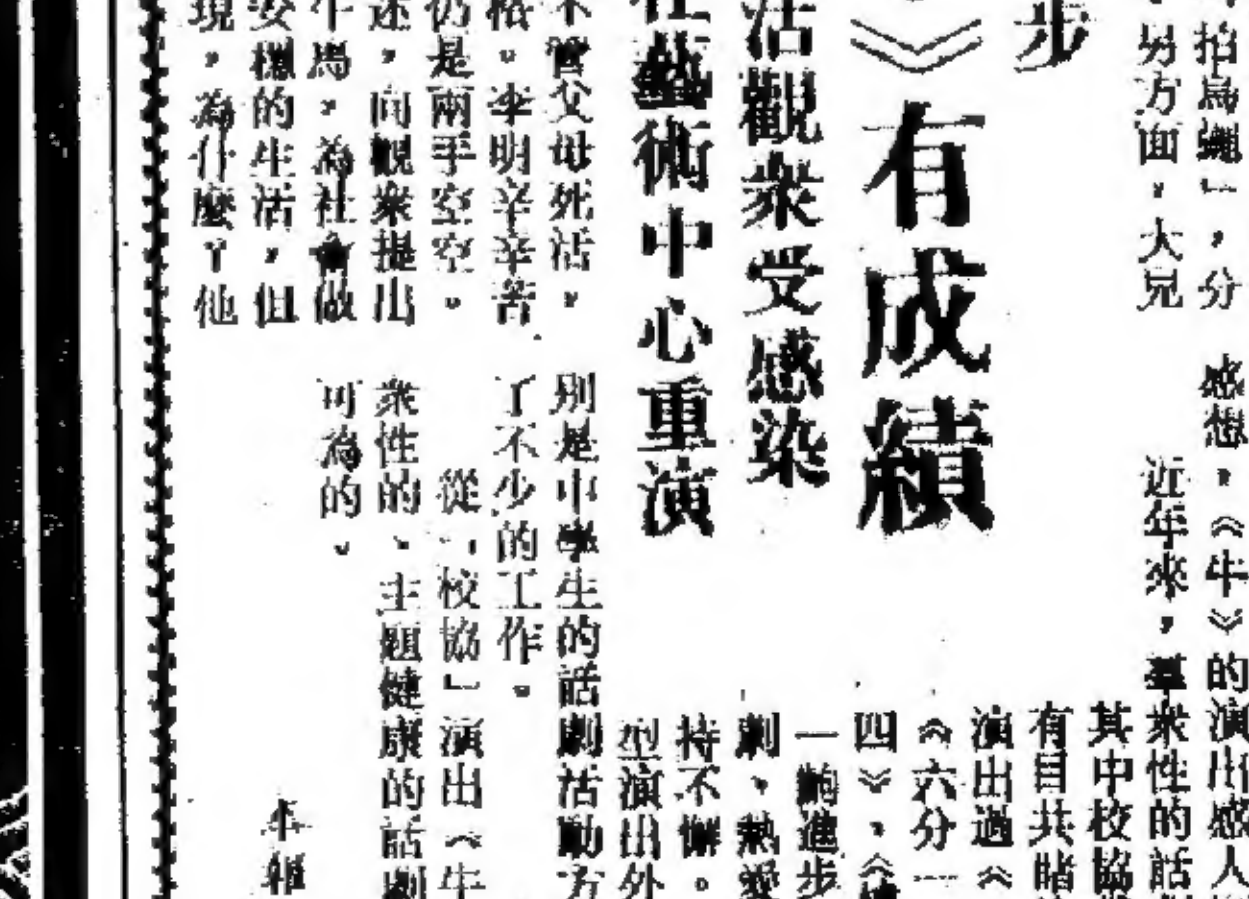 拍烏蠅」，分
另方面，大兄
步
》有成績
活觀衆受感染
藝術中心重演
不管父母死活，
。李明辛辛苦
仍是兩手空空。
迷，向觀衆提出
牛馬，為社會做
安穩的生活，但
現，為什麼？他
感想，《牛》的演出感人
近年來，羣衆性的話
其中校協
有目共睹
演出過《
《六分一
四》，《
一齣進步
劇、熱愛
持不懈。
型演出外
別是中學生的話劇活動方
了不少的工作。
從「校協」演出《牛
衆性的、主題健康的話劇
可為的。
本報